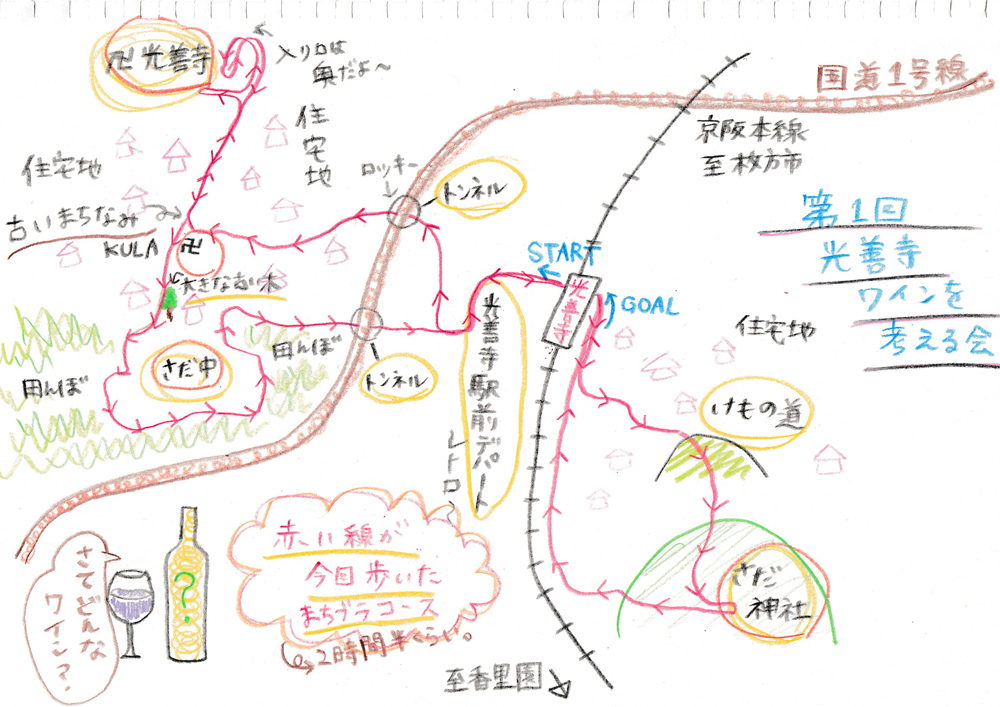 卍光善寺
入リ口は
奥だよ〜
国道1号線
住宅地
住宅地
京阪本線
至枚方市
ロッキー
トンネル
古いまちなみ
KULA
卍
大きな古い木
第1回
光善寺
ワインを
考える会
START
光善寺
GOAL
住宅地
さだ中
田んぼ
田んぼ
トンネル
光善寺駅前デパート
レトロ〜
けもの道
さだ
神社
赤い線が
今回歩いた
まちブラコース
2時間半くらい。
さてどんな
ワイン?
?
至香里園